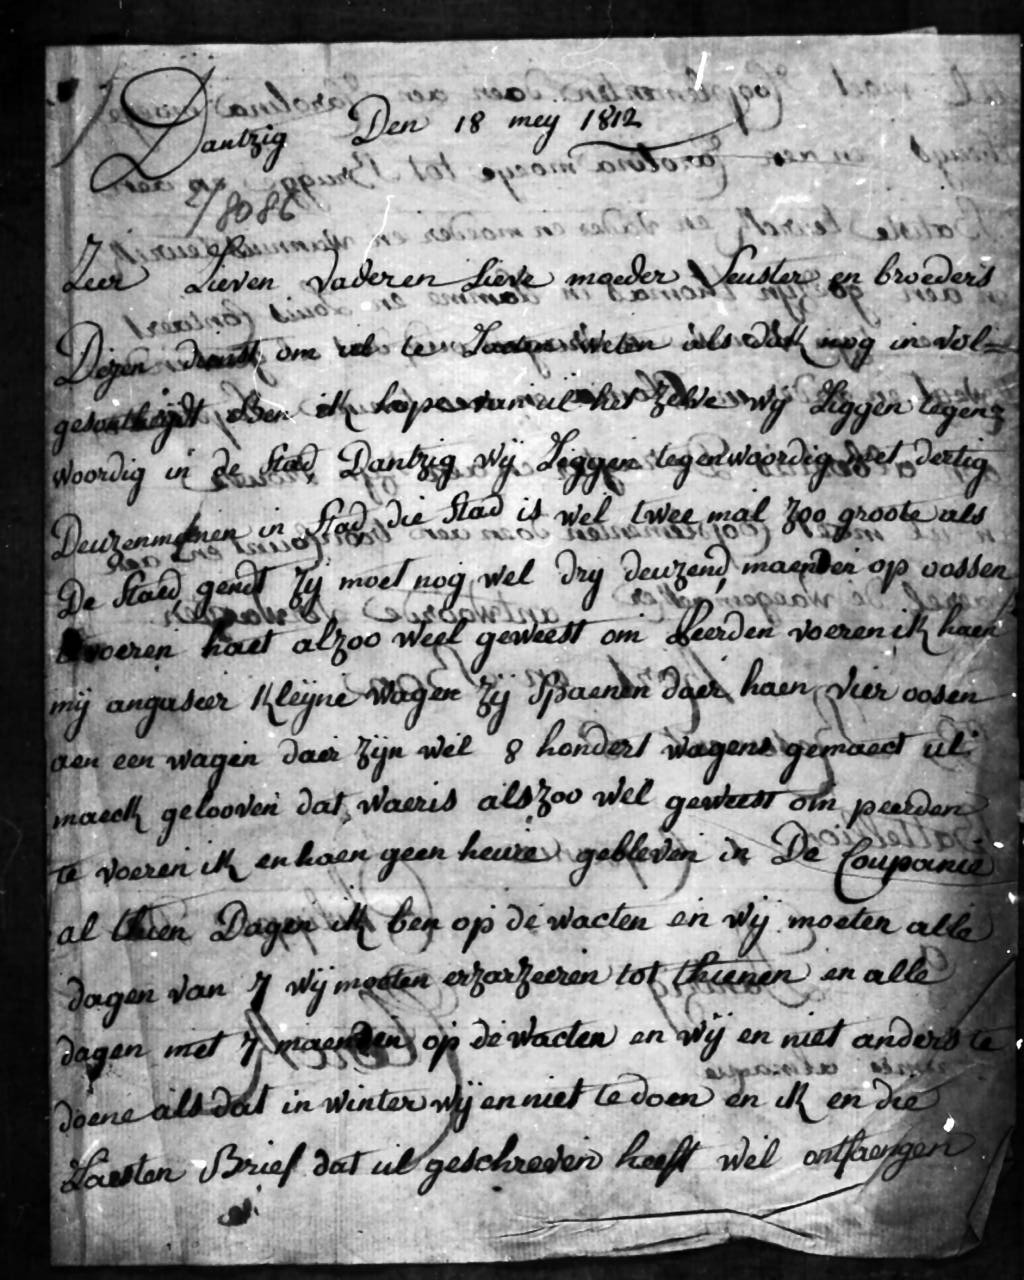 Dantzig Den 18 mey 1812
2/8086
Zeer Lieven vader en Lieve moeder Seuster en broeders
Dezen om ul te Laeten Weten als dat ik nog in vol=
gesontheijdt Ben ik hope van ul het zelve wij Liggen tegenz
woordig in de Stad Dantzig wij Liggen tegenwoordig met dertig
Deuzenmanen in Stad die Stad is wel twee mal zoo groote als
De Staed gendt zij moet nog wel dry deuzend maenden op oossen
voeren haet alzoo weel geweest om Peerden voeren ik haen
mij angaseer Kleyne wagen zij Spaenen daer haen vier oosen
aen een wagen daer zijn wel 8 hondert wagens gemaect ul
maeck gelooven dat waeris alszoo wel geweest om peerden
te voeren ik en haen geen heure gebleven in De Coupanie
al thien Dagen ik ben op de wacten en wij moeten alle
dagen van 7 wij moeten erzarzeeren tot thienen en alle
dagen met 7 maenden op de wacten en wij en niet anders te
doene als dat in winter wij en niet te doen en ik en die
Laesten Brief dat ul geschreven heeft wel ontfaengen